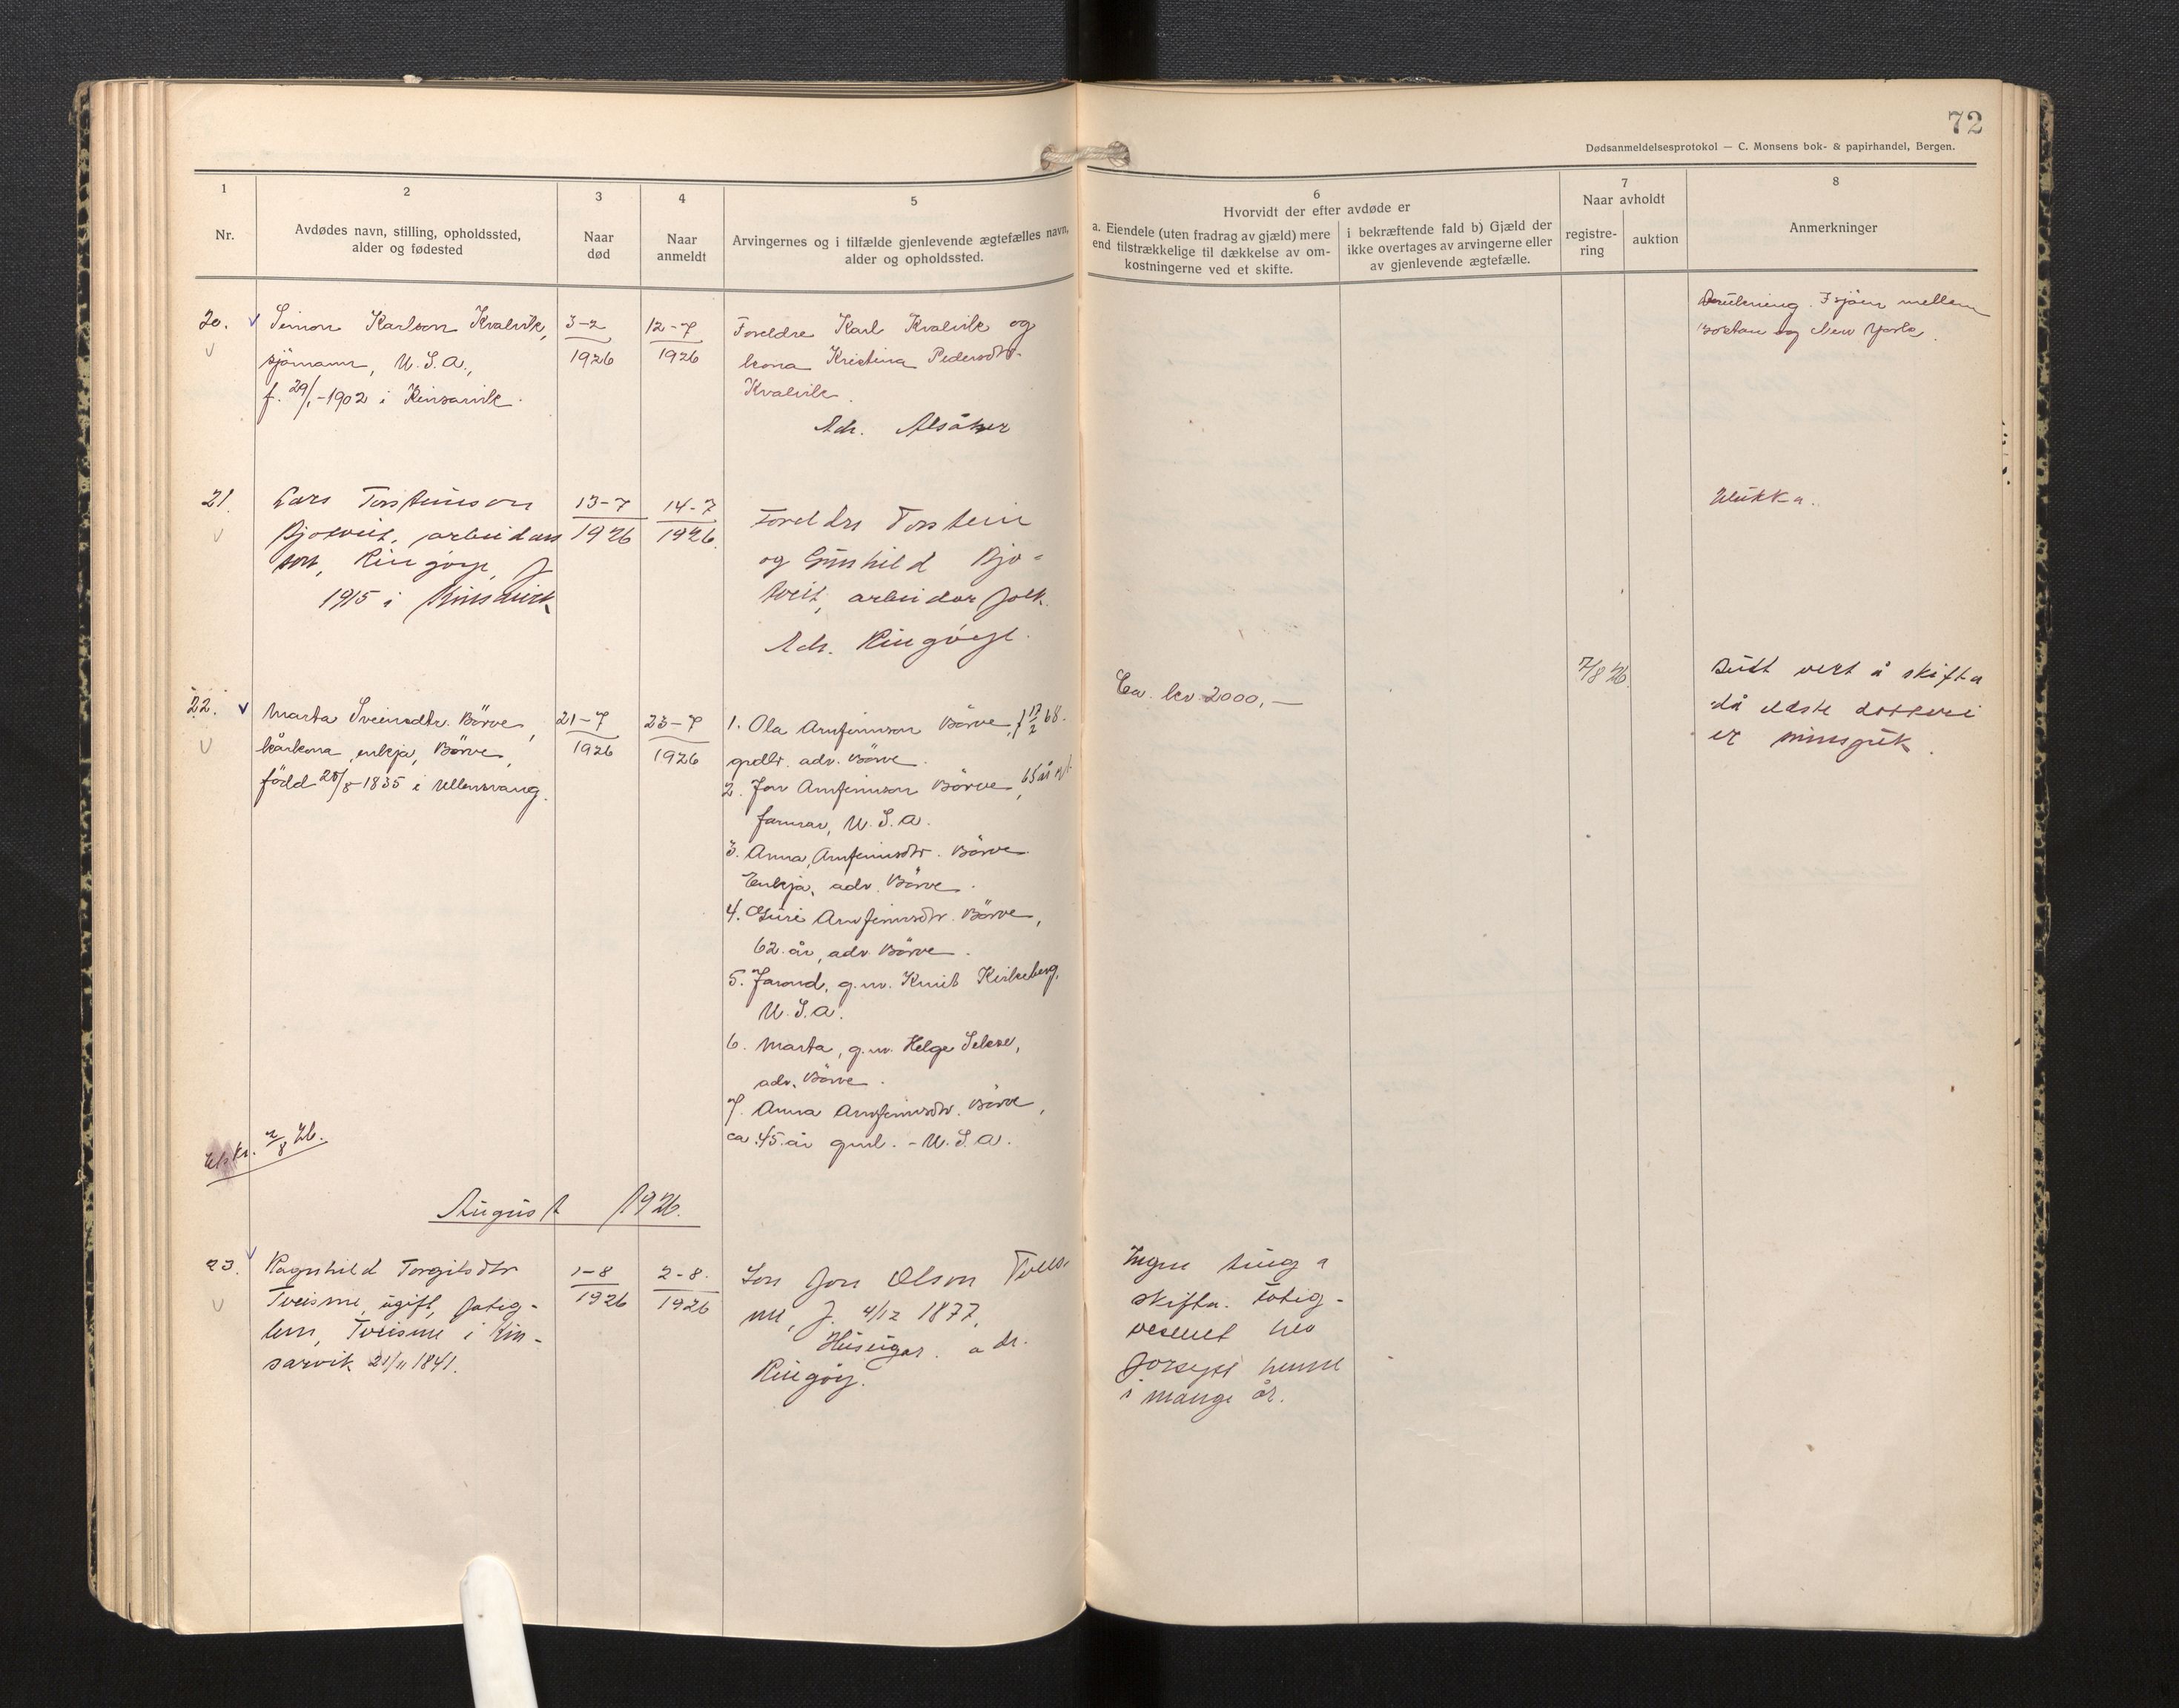 72
Dødsanmeldelsesprotokol — C. Monsens bok- & papirhandel, Bergen.
1
Nr.
2
Avdødes navn, stilling, opholdssted,
alder og fødested
3
Naar
død
4
Naar
anmeldt
5
Arvingernes og i tilfælde gjenlevende ægtefælles navn,
alder og opholdssted.
6
Hvorvidt der efter avdøde er
a. Eiendele (uten fradrag av gjæld) mere
end tilstrækkelige til dækkelse av om-
kostningerne ved et skifte.
i bekræftende fald b) Gjæld der
ikke overtages av arvingerne eller
av gjenlevende ægtefælle.
7
Naar avholdt
registre-
ring
auktion
8
Anmerkninger
20.
Simon Karlson Kvalvik,
sjömann, U.S.A.,
f. 29/1-1902 i Kinsarvik.
3-2
1926
12-7
1926
Foreldre Karl Kvalvik og
kona Kristina Pedersdtr.
Kvalvik.
Adr. Alsåker
Drukning. I sjöen mellem
Boston og New York.
21.
Lars Torsteinson
Bjotveit, arbeidars
son, Ringöy, f
1915 i Kinsarvik
13-7
1926
14-7
1926.
Foreldre Torstein
og Gunhild Bjo-
tveit, arbeidarfolk.
Adr. Ringöy.
Ulukka.
22.
Marta Sveinsdtr. Börve,
kårkona, enkja, Börve,
född 28/8-1835 i Ullensvang.
21-7
1926
23-7
1926
1. Ola Arnfinnson Börve, f 17/2 68.
grdbr. adr. Börve.
2. Jon Arnfinnson Börve, 65 år
farmar, U.S.A.
3. Anna Arnfinnsdtr. Börve
Enkja, adr. Börve.
4. Guri Arnfinnsdtr. Börve,
62 år, adr. Börve.
5. Jorond, g.m. Knut Kirkeberg,
U.S.A.
6. Marta, g.m. Helge Sekse,
adr. Börve.
7. Anna Arnfinnsdtr. Börve,
ca. 45 år - U.S.A.
Ca. kr. 2000,-
7/8 26.
vert å skifta
då eldste
er
Utskr. 2/8 26.
August 1926.
23.
Ragnhild Torgilsdtr
Tveisme, ugift, fatig-
lem, Tveisme i Kin-
sarvik 21/11 1841.
1-8
1926
2-8.
1926
Son Jon Olson Tveis-
me, f. 4/12 1877,
Huseigar. adr.
Ringöy.
Ingen ting å
skifta. Fatig-
vesenet har
forsytt henne
i mange år.